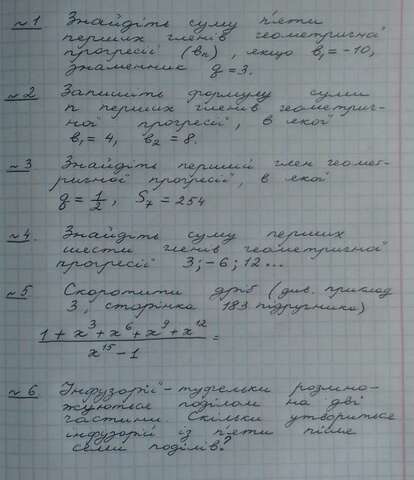 №1 Знайдіть суму п'яти
перших членів геометричної
прогресії (bn), якщо b₁ = -10,
знаменник q = 3.
№2 Запишіть формулу суми
n перших членів геометрич-
ної прогресії, в якої
b₁ = 4, b₂ = 8.
№3 Знайдіть перший член геомет-
ричної прогресії, в якої
q = 1/2, S₇ = 254
№4. Знайдіть суму перших
шести членів геометричної
прогресії 3; -6; 12...
№5 Скоротити дріб (див. приклад
3, сторінка 183 підручника)
1 + x³ + x⁶ + x⁹ + x¹² =
x¹⁵ - 1
№6 Інфузорії-туфельки розмно-
жуються поділом на дві
частини. Скільки утвориться
інфузорій із п'яти після
семи поділів?